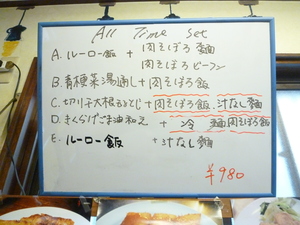 All Time Set
A. ルーロー飯 + 肉そぼろ麺
肉そぼろビーフン
B. 青梗菜湯通し + 肉そぼろ飯
C. 切り干大根 + 肉そぼろ飯、汁なし麺
D. きくらげごま油和え + 冷麺 肉そぼろ飯
E. ルーロー飯 + 汁なし麺
¥980